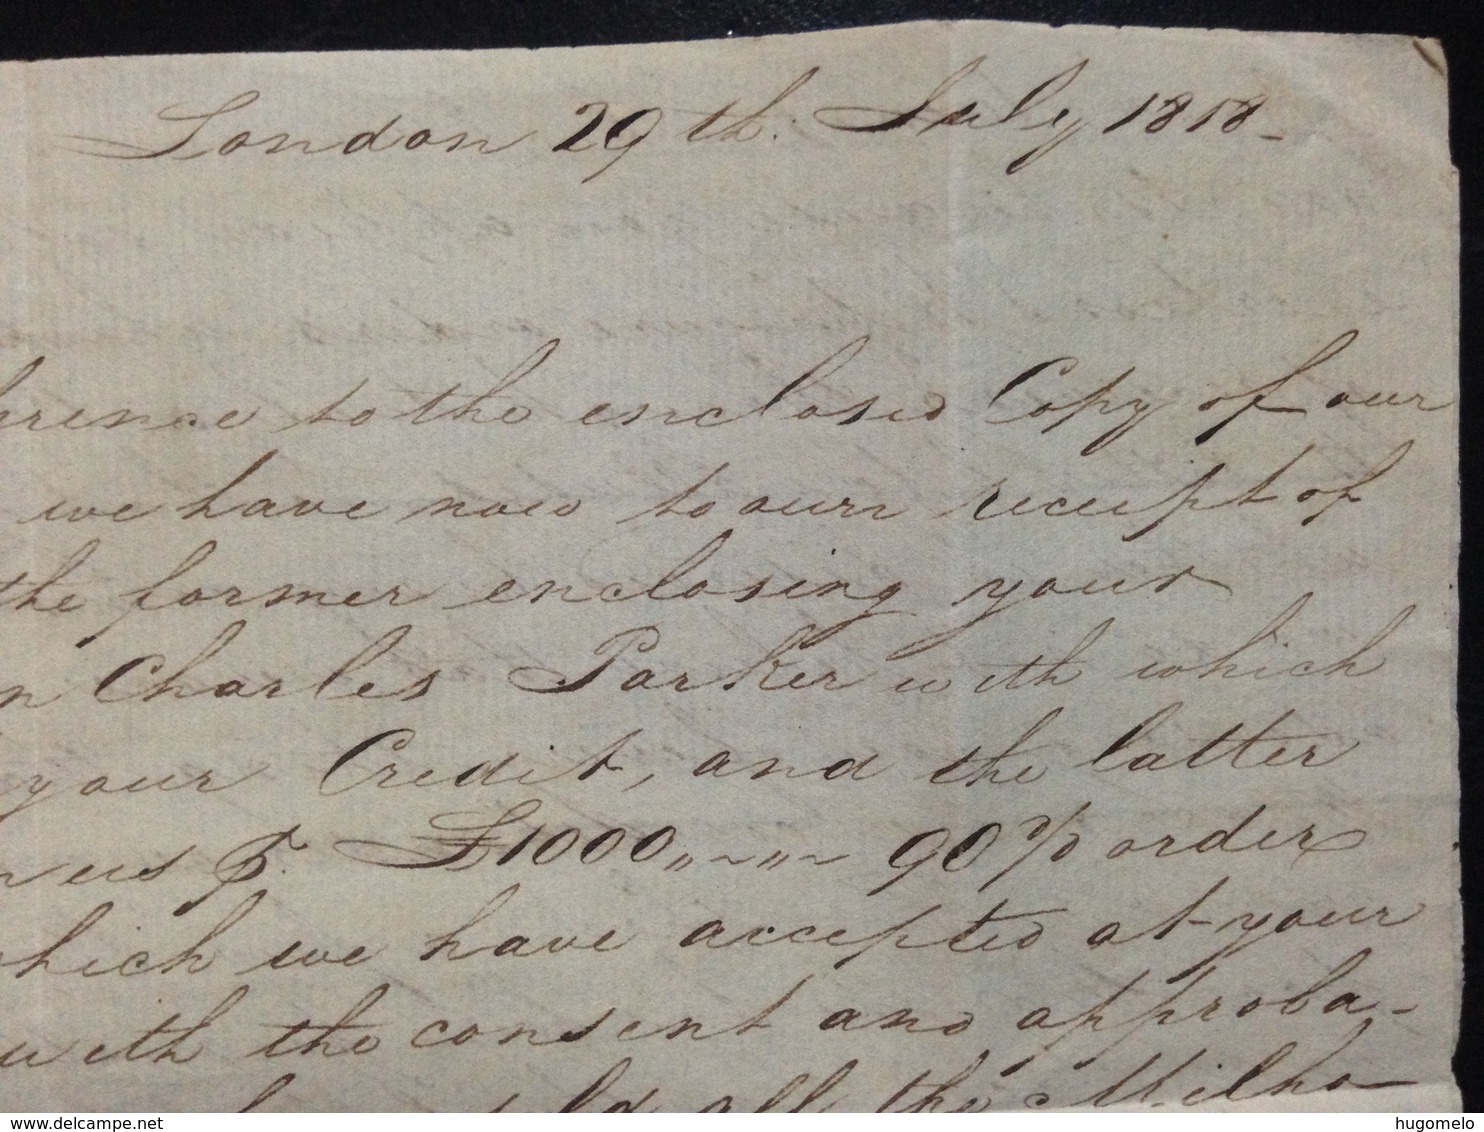 London 29th. July 1818-
hrence to the enclosed Copy of our
we have now to ourr receipt of
the former enclosing your
n Charles Parker with which
your Credit, and the latter
us £1000 90 order
hich we have accepted at your
with the consent and approba-
sold all the Milho
www.delcampe.net
hugomelo